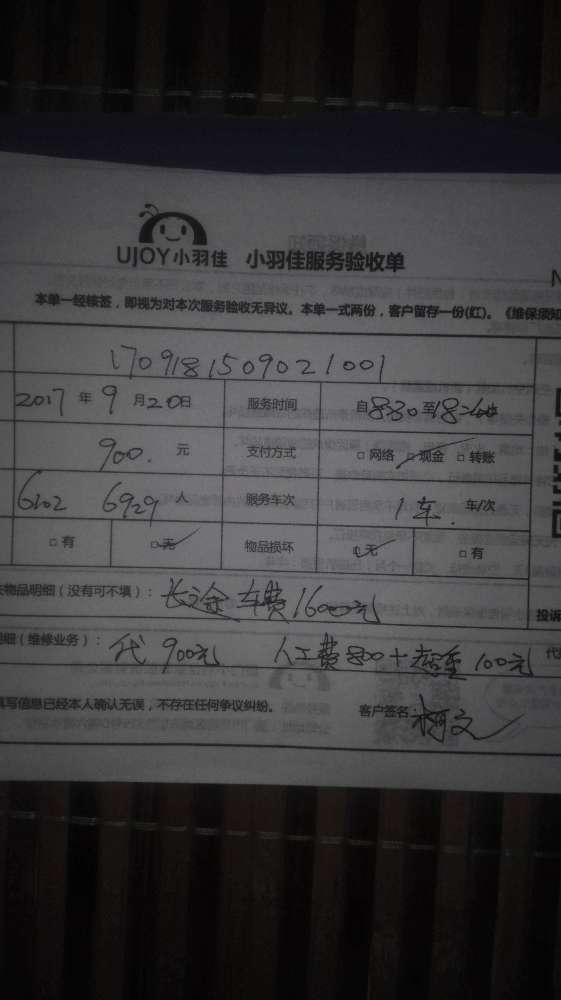 UJOY小羽佳 小羽佳服务验收单
N
本单一经核签，即视为对本次服务验收无异议。本单一式两份，客户留存一份(红)。《维保须知
1709181509021001
2017 年 9 月 20 日 服务时间 自 8:30 至 18
900. 元 支付方式 □ 网络 □ 现金 □ 转账
6202 6929 人 服务车次 1车. 年/次
□ 有 □ 无 物品损坏 □ 无 □ 有
物品明细（没有可不填）： 长途车费1600元
投诉
细（维修业务）： 代 900元 人工费800+超重100元 代
填写信息已经本人确认无误，不存在任何争议纠纷。 客户签名：